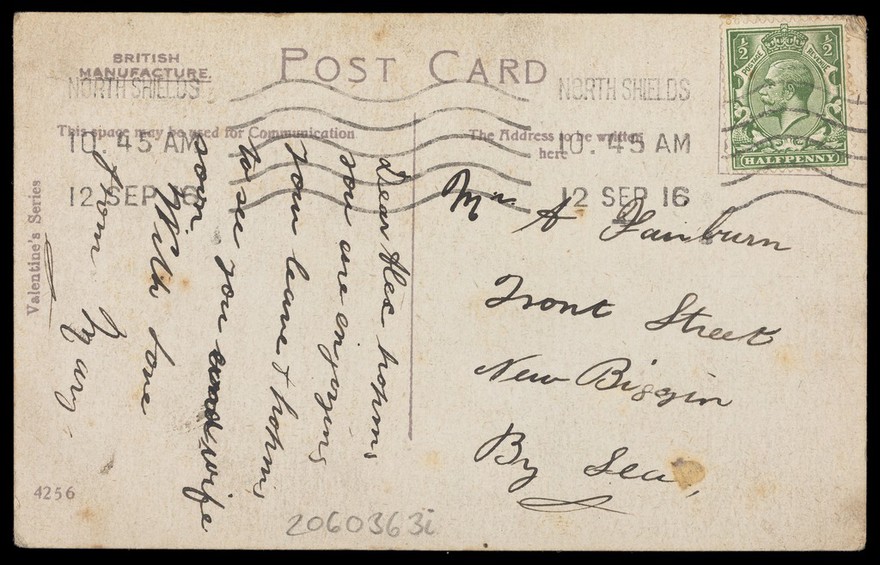 BRITISH
MANUFACTURE.
POST CARD
NORTH SHIELDS
10.45 AM
12 SEP 16
NORTH SHIELDS
10.45 AM
12 SEP 16
This space may be used for Communication
The Address to be written
here
½ ½
POSTAGE REVENUE
HALFPENNY
Dear Alec hoping
you are enjoying
Your leave & hoping
to see you and wife
soon
With Love
from Mary
Mr A Fairburn
Front Street
New Biggin
By Sea,
Valentine's Series
4256
2060363i